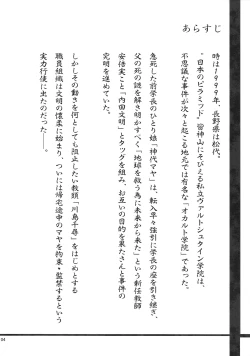 あらすじ
時は1999年、長野県は松代。
“日本のピラミッド”皆神山にそびえる私立ヴァルトシュタイン学院は、
不思議な事件が次々と起こる地元では有名な「オカルト学院」であった。
急死した前学長のひとり娘「神代マヤ」は、転入早々強引に学長の座を引き継ぎ、
父の死の謎を解き明かすべく、「地球を救う為に未来から来た」という新任教師
安倍実こと「内田文明」とタッグを組み、お互いの目的を果たさんと事件の
究明を進めていた。
しかしその動きを何としても阻止したい教頭「川島千尋」をはじめとする
職員組織は文明の懐柔に始まり、ついには帰宅途中のマヤを拘束・監禁するという
実力行使に出たのだった──。
04